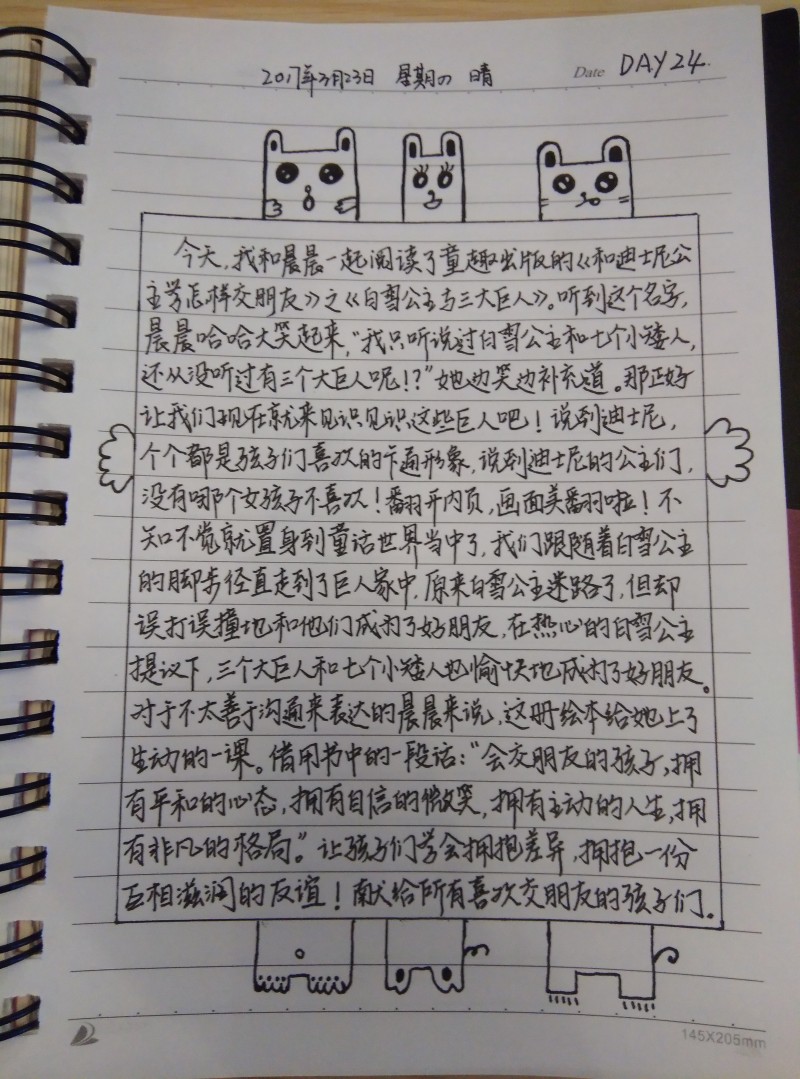 2017年3月23日 星期四 晴
Date DAY 24.
今天,我和晨晨一起阅读了童趣出版的《和迪士尼公
主学怎样交朋友》之《白雪公主与三大巨人》。听到这个名字,
晨晨哈哈大笑起来,“我只听说过白雪公主和七个小矮人,
还从没听过有三个大巨人呢!?”她边笑边补充道。那正好
让我们现在就来见识见识这些巨人吧!说到迪士尼,
个个都是孩子们喜欢的卡通形象,说到迪士尼的公主们,
没有哪个女孩子不喜欢!翻开内页,画面美翻啦!不
知不觉就置身到童话世界当中了,我们跟随着白雪公主
的脚步径直走到了巨人家中,原来白雪公主迷路了,但却
误打误撞地和他们成为了好朋友,在热心的白雪公主
提议下,三个大巨人和七个小矮人也愉快地成为了好朋友。
对于不太善于沟通来表达的晨晨来说,这册绘本给她上了
生动的一课。借用书中的一段话:“会交朋友的孩子,拥
有平和的心态,拥有自信的微笑,拥有主动的人生,拥
有非凡的格局。”让孩子们学会拥抱差异,拥抱一份
互相滋润的友谊!献给所有喜欢交朋友的孩子们。
145X205mm